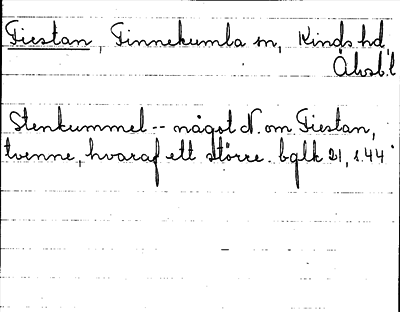 Fiestan, Finnekumla sn, Kinds hd,
Älvsb. l
Stenkummel -- något N. om Fiestan,
tvenne, hvaraf ett större. bglk 21, s. 44